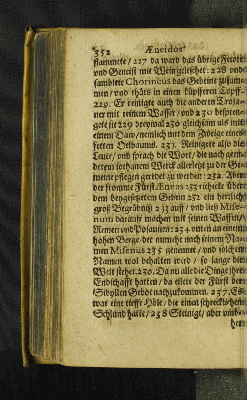 352 Æneidos
flammekt / 227 da ward das übrige Feuer
und Geneist mit Wein gelescht: 228 und
samblete Chorineus das Gebeine zusam=
men / und thäts in einen küpfferen Topff.
229. Er reinigte auch die anderen Troja=
ner mit reinem Wasser / und 230 bespren=
gete sie 229 dreymal 230 gleichsam als mit
einem Daw / nemlich mit dem Zweige eines
fetten Oelbaums. 231. Reinigete also die
Leute / und sprach die Wort / die nach geen=
detem sothanem Werck allerletzt zu der Ge=
meine pflegen geredet zu werden: 232. Aber
der fromme Fürst Æneas 233 richtete über
dem beygesetztem Gebein 232 ein herrlich
groß Begräbniß 233 auff / und ließ Mise=
num darauff machen mit seinen Waffen /
Remen und Posaunen: 234 unten an einem
hohen Berge / der nunmehr nach seinem Na=
men Misenus 235 genennet / und solchen
Namen wol behalten wird / so lange die
Welt stehet. 236. Da nu alle die Dinge ihre
Endschafft hatten / da eilete der Fürst der
Sibyllen Gebot nachzukommen. 237. Es
war eine tieffe Höle / die einen schrecklichen
Schlund hatte / 238 Steinigt / aber umb=
her